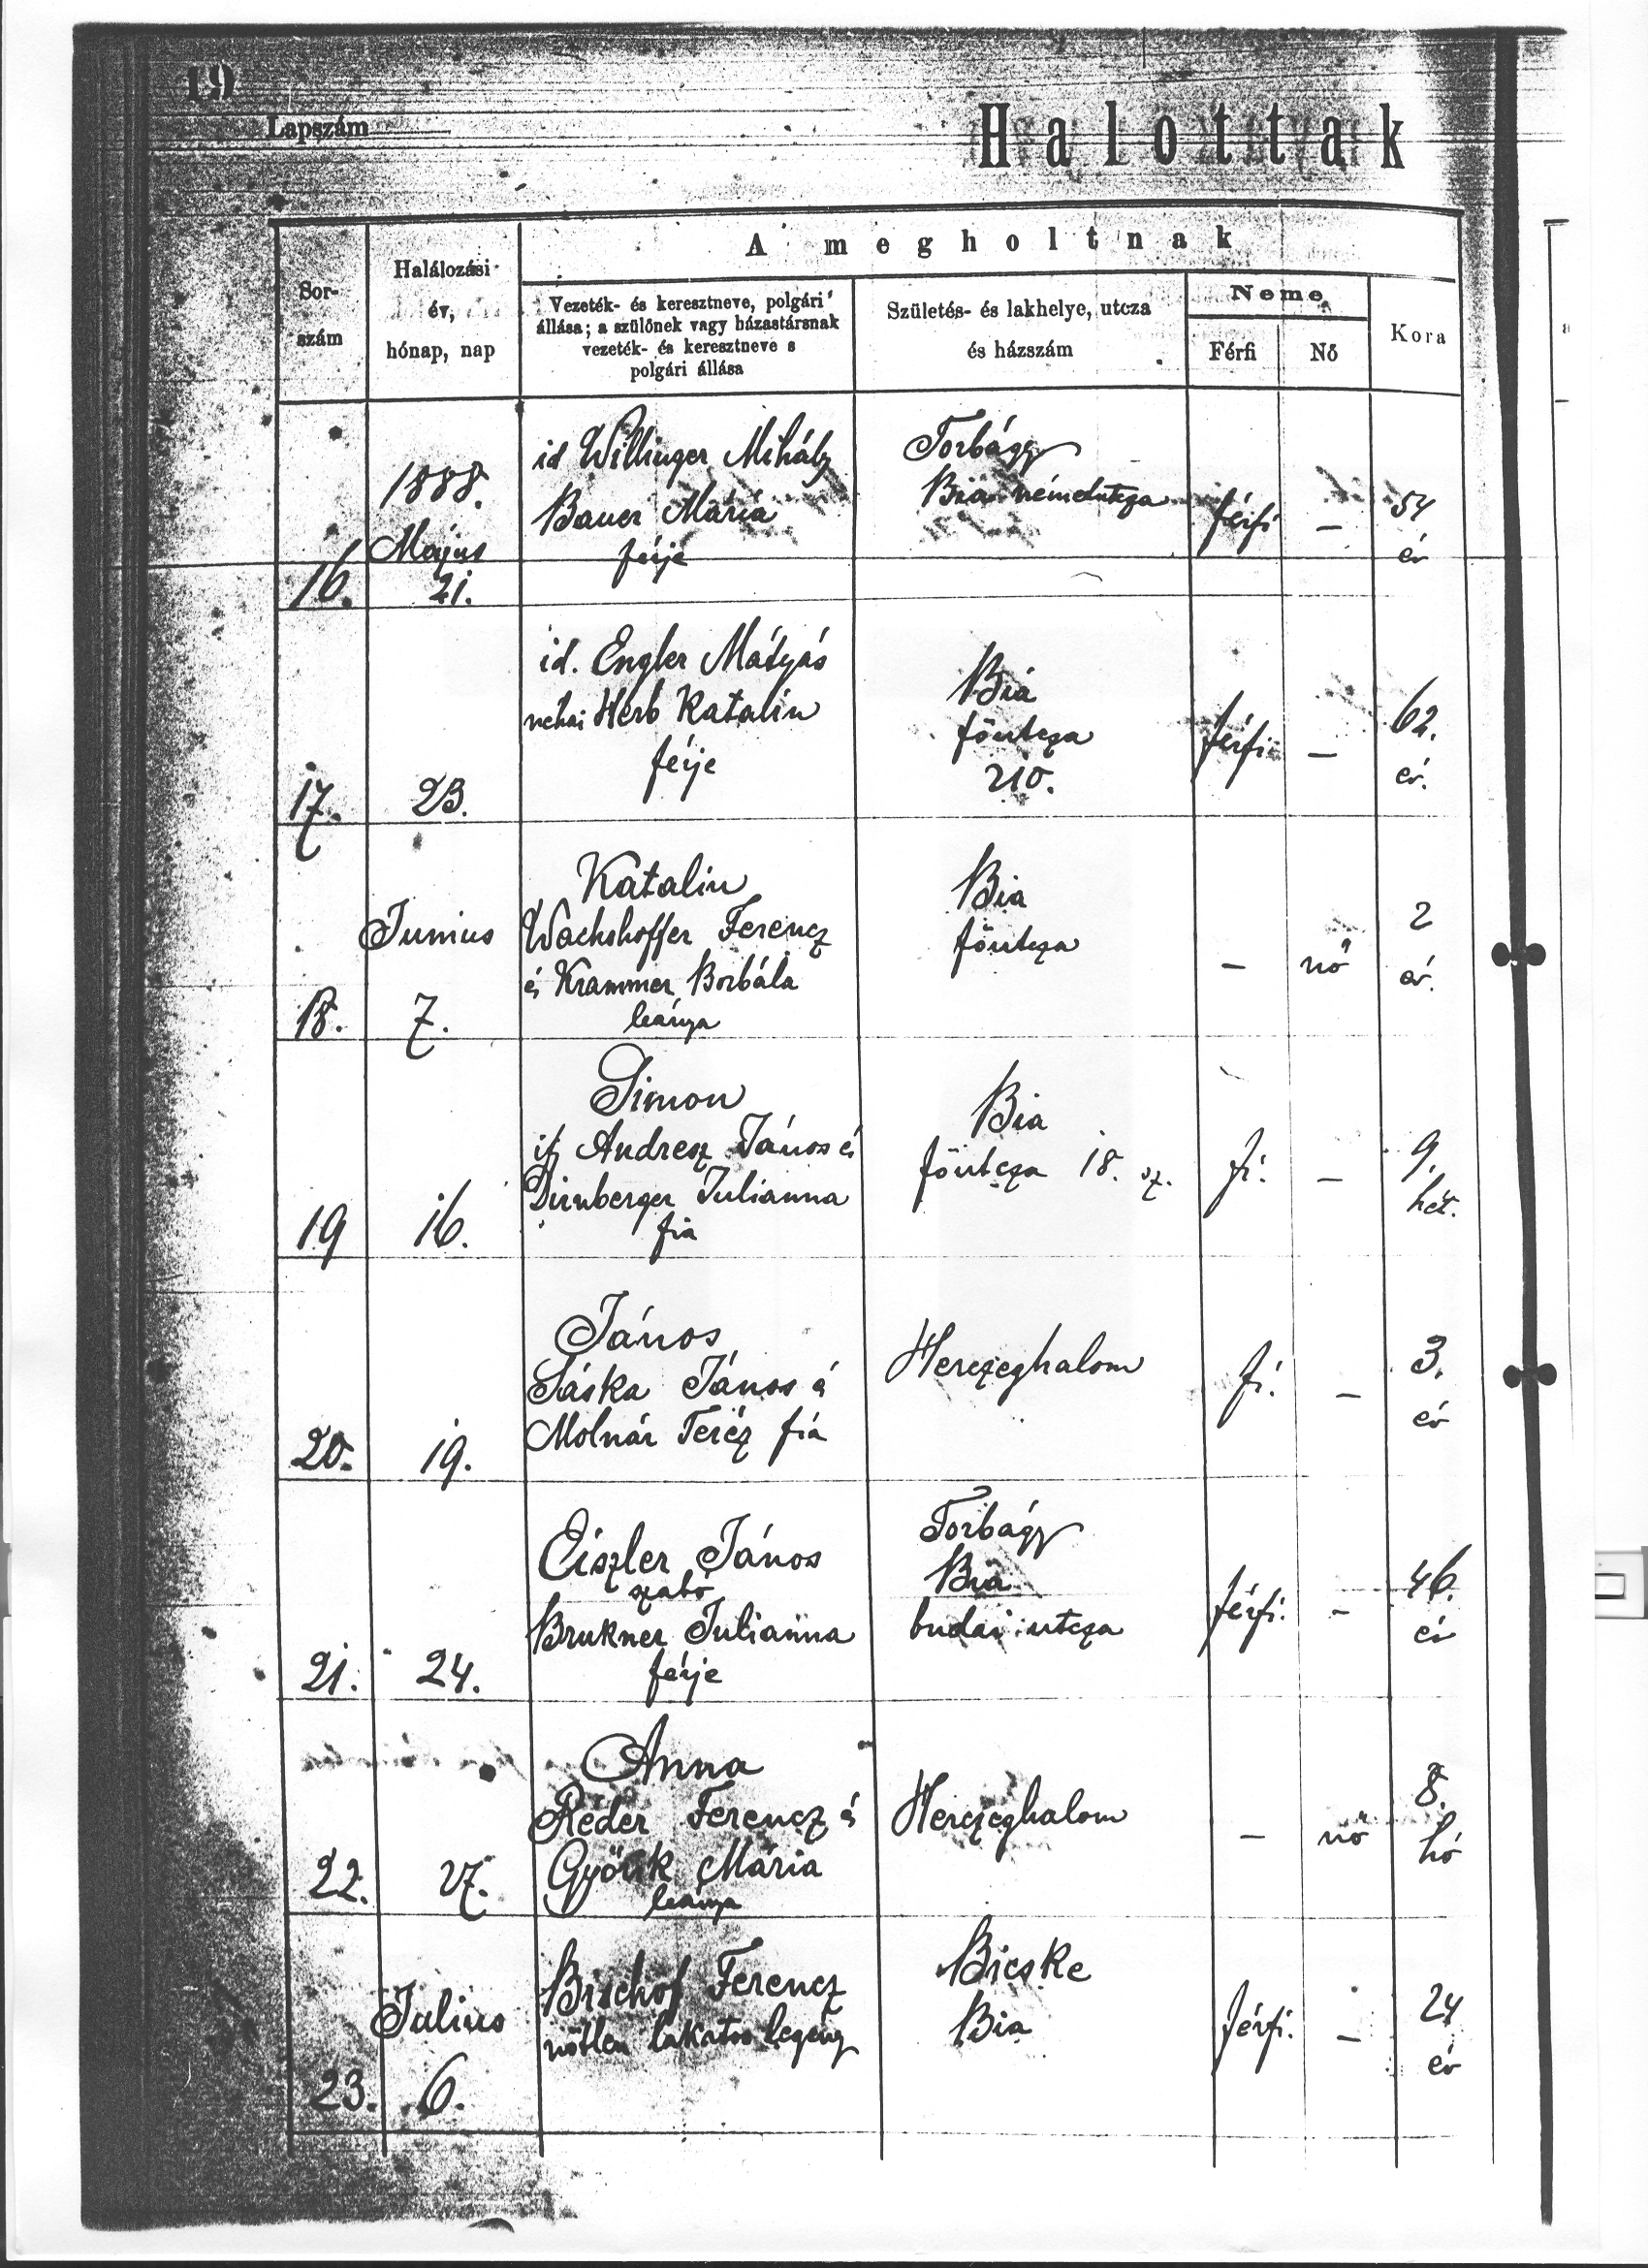 19
Lapszám
Halottak
Sor-
szám
Halálozási
év,
hónap, nap
A megholtnak
Vezeték- és keresztneve, polgári
állása; a szülőnek vagy házastársnak
vezeték- és keresztneve s
polgári állása
Születés- és lakhelye, utcza
és házszám
Neme
Férfi
Nő
Kora
16.
1888.
Majus
21.
id Willinger Mihály
Bauer Mária
férje
Torbágy
Bia németutcza
férfi
–
54
év
17.
23.
id. Engler Mátyás
néhai Herb Katalin
férje
Bia
főutcza
210.
férfi
–
62.
év.
18.
Junius
7.
Katalin
Wachshoffer Ferencz
és Krammer Borbála
leánya
Bia
főutcza
–
nő
2
év.
19
16.
Simon
ifj Andresz János és
Dirnberger Julianna
fia
Bia
főutcza 18. sz.
fi.
–
9.
hét.
20.
19.
János
Sáska János é
Molnár Teréz fia
Herczeghalom
fi.
–
3.
év
21.
24.
Eiszler János
szabó
Brukner Julianna
férje
Torbágy
Bia
budai utcza
férfi.
–
46.
év
22.
27.
Anna
Reder Ferencz é
Mária
leánya
Herczeghalom
–
nő
8.
hó
23.
Julius
6.
Bischof Ferencz
nőtlen lakatos legény
Bicske
Bia
férfi.
–
24
év